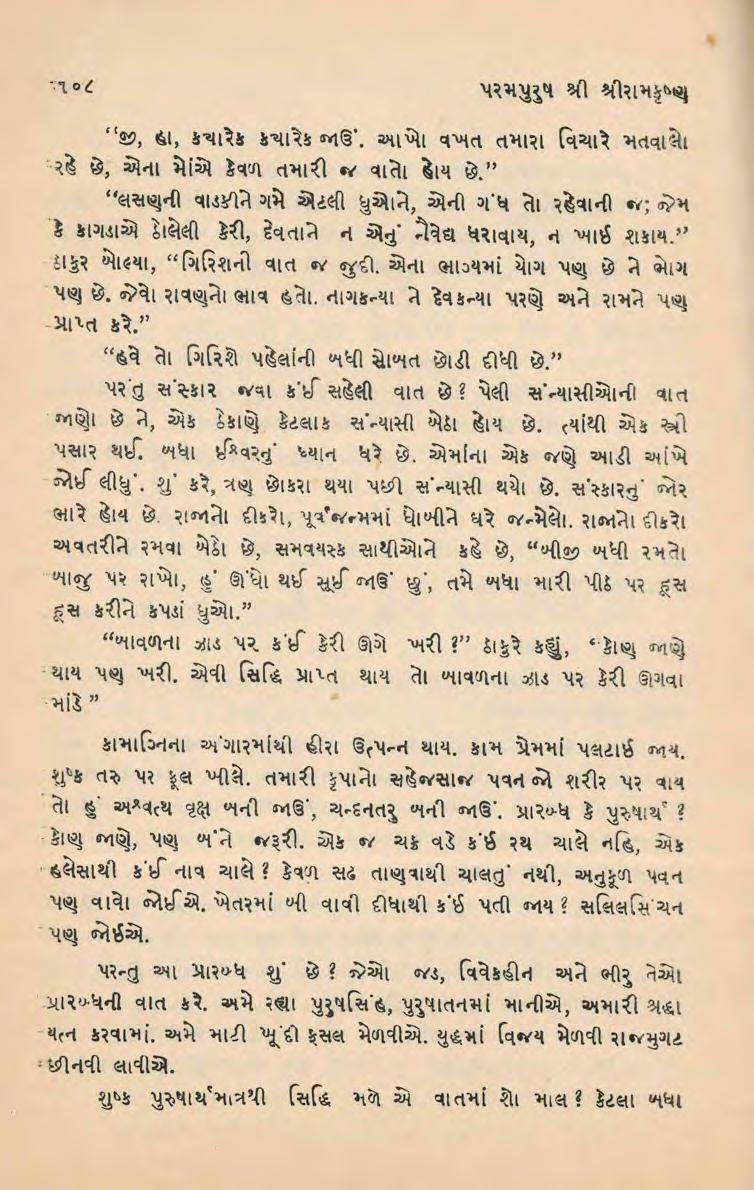 ૧૦૮
પરમપુરુષ શ્રી શ્રીરામકૃષ્ણ
“જી, હા, કયારેક કયારેક જાઉં. આખો વખત તમારા વિચારે મતવાલો
રહે છે, એના મોંએ કેવળ તમારી જ વાતો હોય છે.”
“લસણની વાડકીને ગમે એટલી ધુઓને, એની ગંધ તો રહેવાની જ; જેમ
કે કાગડાએ ઠોલેલી કેરી, દેવતાને ન એનું નૈવેદ્ય ધરાવાય, ન ખાઈ શકાય.”
ઠાકુર બોલ્યા, “ગિરિશની વાત જ જુદી. એના ભાગ્યમાં યોગ પણ છે ને ભોગ
પણ છે. જેવો રાવણનો ભાવ હતો. નાગકન્યા ને દેવકન્યા પરણે અને રામને પણ
પ્રાપ્ત કરે.”
“હવે તો ગિરિશે પહેલાંની બધી સોબત છોડી દીધી છે.”
પરંતુ સંસ્કાર જવા કંઈ સહેલી વાત છે? પેલી સંન્યાસીઓની વાત
જાણો છે ને, એક ઠેકાણે કેટલાક સંન્યાસી બેઠા હોય છે. ત્યાંથી એક સ્ત્રી
પસાર થઈ. બધા ઈશ્વરનું ધ્યાન ધરે છે. એમાંના એક જણે આડી આંખે
જોઈ લીધું. શું કરે, ત્રણ છોકરા થયા પછી સંન્યાસી થયો છે. સંસ્કારનું જોર
ભારે હોય છે. રાજાનો દીકરો, પૂર્વજન્મમાં ધોબીને ઘરે જન્મેલો. રાજાનો દીકરો
અવતરીને રમવા બેઠો છે, સમવયસ્ક સાથીઓને કહે છે, “બીજી બધી રમતો
બાજુ પર રાખો, હું ઊંધો થઈ સૂઈ જાઉં છું, તમે બધા મારી પીઠ પર હૂસ
હૂસ કરીને કપડાં ધુઓ.”
“બાવળના ઝાડ પર કંઈ કેરી ઊગે ખરી?” ઠાકુરે કહ્યું, “કોણ જાણે
થાય પણ ખરી. એવી સિદ્ધિ પ્રાપ્ત થાય તો બાવળના ઝાડ પર કેરી ઊગવા
માંડે”
કામાગ્નિના અંગારમાંથી હીરા ઉત્પન્ન થાય. કામ પ્રેમમાં પલટાઈ જાય.
શુષ્ક તરુ પર ફૂલ ખીલે. તમારી કૃપાનો સહેજસાજ પવન જો શરીર પર વાય
તો હું અશ્વત્થ વૃક્ષ બની જાઉં, ચન્દનતરુ બની જાઉં. પ્રારબ્ધ કે પુરુષાર્થ?
કોણ જાણે, પણ બંને જરૂરી. એક જ ચક્ર વડે કંઈ રથ ચાલે નહિ, એક
હલેસાથી કંઈ નાવ ચાલે? કેવળ સઢ તાણવાથી ચાલતું નથી, અનુકૂળ પવન
પણ વાવો જોઈએ. ખેતરમાં બી વાવી દીધાથી કંઈ પતી જાય? સલિલસિંચન
પણ જોઈએ.
પરન્તુ આ પ્રારબ્ધ શું છે? જેઓ જડ, વિવેકહીન અને ભીરુ તેઓ
પ્રારબ્ધની વાત કરે. અમે રહ્યા પુરુષસિંહ, પુરુષાતનમાં માનીએ, અમારી શ્રદ્ધા
યત્ન કરવામાં. અમે માટી ખૂંદી ફસલ મેળવીએ. યુદ્ધમાં વિજય મેળવી રાજમુગટ
છીનવી લાવીએ.
શુષ્ક પુરુષાર્થમાત્રથી સિદ્ધિ મળે એ વાતમાં શો માલ? કેટલા બધા